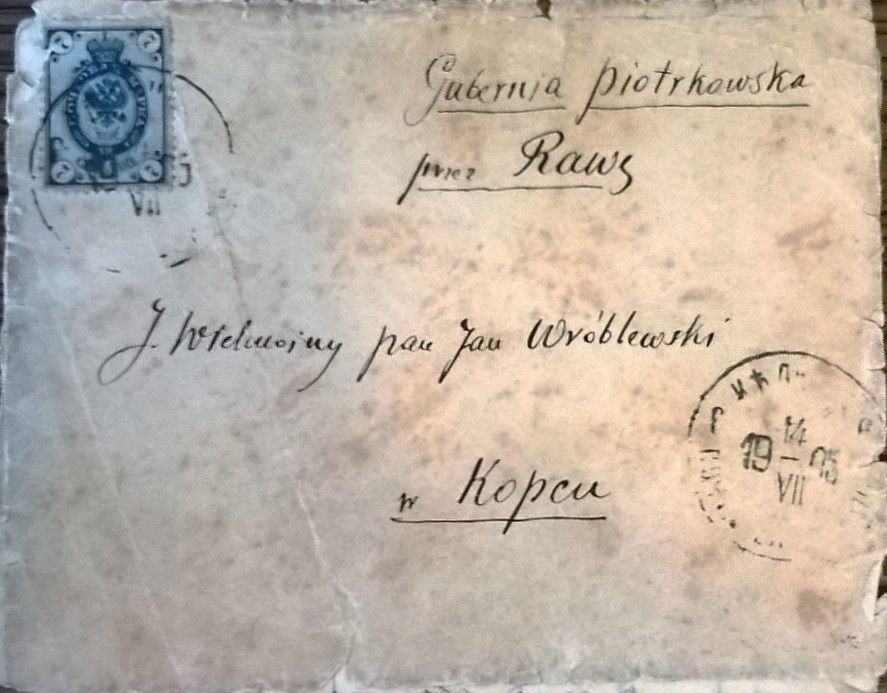 7 7
7 7
VII
Gubernia piotrkowska
przez Rawę
J. Wielmożny pan Jan Wróblewski
w Kopcu
14
19 05
VII